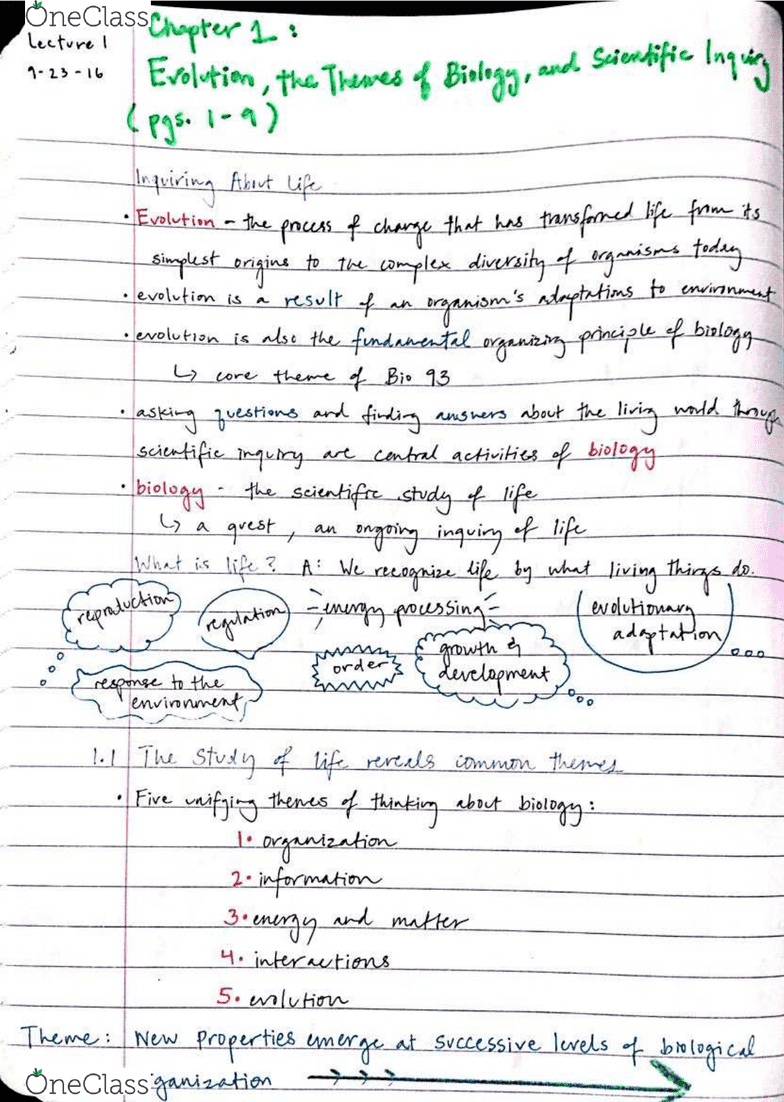 OneClass
Lecture 1
9-23-16
Chapter 1:
Evolution, the Themes of Biology, and Scientific Inquiry
(pgs. 1-9)
Inquiring About Life
• Evolution - the process of change that has transformed life from its
simplest origins to the complex diversity of organisms today
• evolution is a result of an organism's adaptations to environment
• evolution is also the fundamental organizing principle of biology
↳ core theme of Bio 93
• asking questions and finding answers about the living world through
scientific inquiry are central activities of biology
• biology - the scientific study of life
↳ a quest, an ongoing inquiry of life
What is life? A: We recognize life by what living things do.
reproduction
regulation
energy processing
evolutionary
adaptation
response to the
environment
order
growth &
development
1.1 The study of life reveals common themes
• Five unifying themes of thinking about biology:
1. organization
2. information
3. energy and matter
4. interactions
5. evolution
Theme: New properties emerge at successive levels of biological
ganization
OneClass